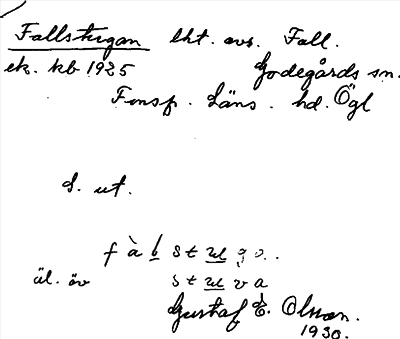 Fallstugan lht. avs. Fall.
ek. kb 1925 Godegårds sn.
Finsp. Läns. hd. Ögl
S. ut.
f à l s t u g a.
äl. äv s t u v a
Gustaf E. Olsson.
1930.